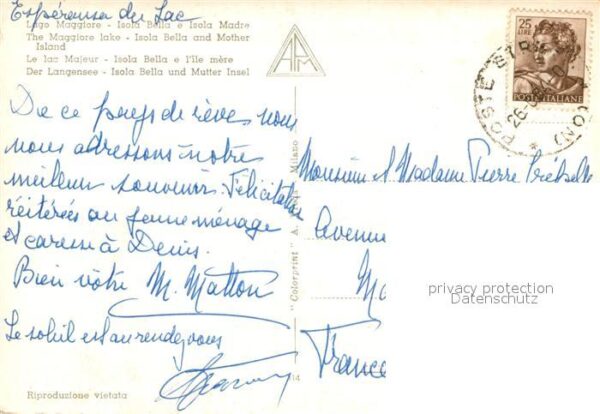 Espéreuse du Lac
Lago Maggiore - Isola Bella e Isola Madre
The Maggiore lake - Isola Bella and Mother
Island
Le lac Majeur - Isola Bella e l'île mère
Der Langensee - Isola Bella und Mutter Insel
De ce pays de rêves nous
nous adressons notre
meilleur souvenir. Félicitation
réitérées au jeune ménage
et caresse à Denis.
Bien vôtre M. Matton
Le soleil est au rendez vous
Riproduzione vietata
"Colorprint" A. Milano
14
APM
25
LIRE
POSTE ITALIANE
POSTE
26
Monsieur & Madame Pierre
Avenue
France
privacy protection
Datenschutz